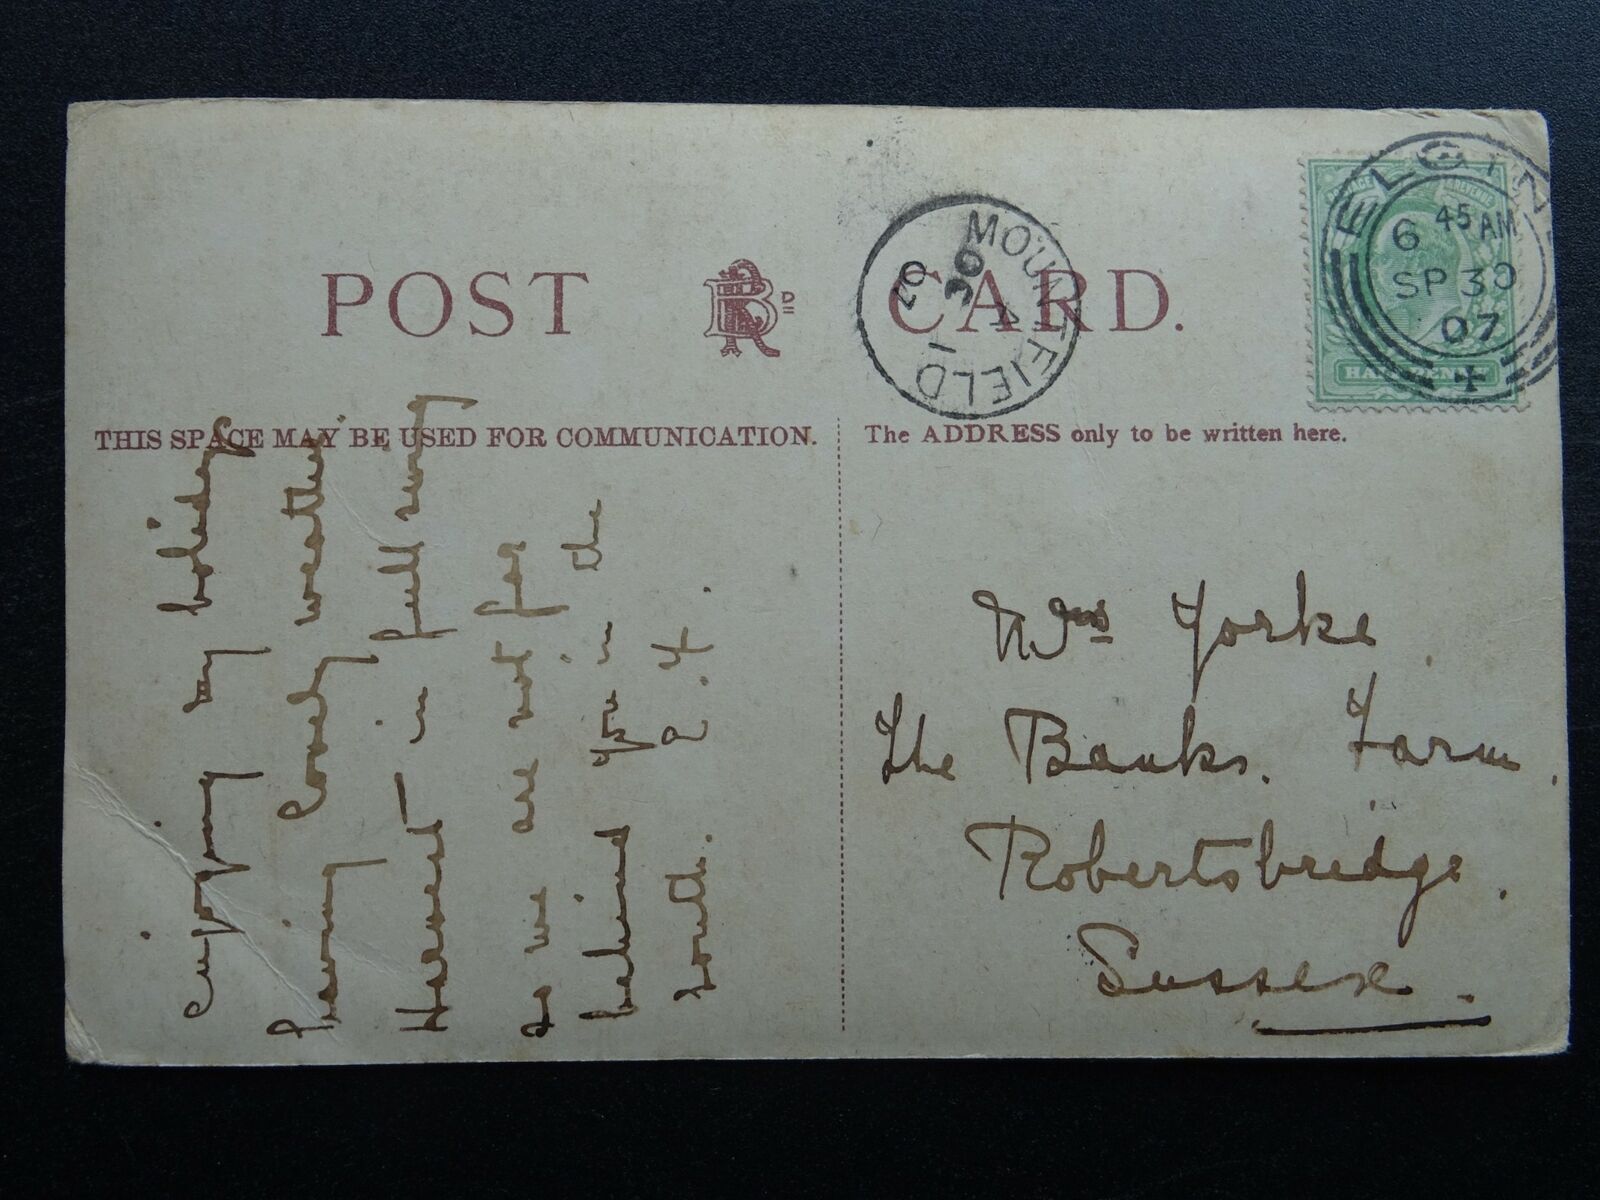 POST CARD.
THIS SPACE MAY BE USED FOR COMMUNICATION.
The ADDRESS only to be written here.
MOUNTFIELD
OC 1
07
ELGIN
6 45 AM
SP 30
07
HALFPENNY
Enjoying my holiday
having lovely weather
Harvest in full swing
so we are not far
behind you in the
South. A. H.
Mrs Yorke
The Banks. Farm.
Robertsbridge.
Sussex.